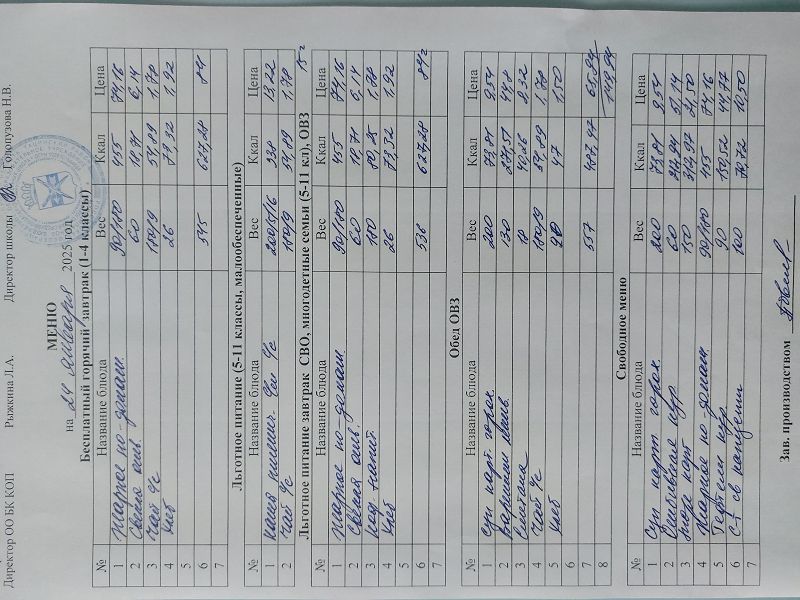 Директор ООО БК КОП Рыжкина Л.А. Директор школы Голопузова Н.В.
МЕНЮ
на 24 января 2025 год
Бесплатный горячий завтрак (1-4 классы)
№ Название блюда Вес Ккал Цена
1 Жаркое по-домаш. 90/180 455 74,16
2 Свекла отв. 60 18,71 6,14
3 Чай ч/с 180/9 54,89 1,78
4 Хлеб 26 73,32 1,92
5
6 545 627,28 84
7
Льготное питание (5-11 классы, малообеспеченные)
№ Название блюда Вес Ккал Цена
1 Каша пшенич. 200/5/6 338 13,22
2 Чай ч/с 180/9 54,89 1,78
15
Льготное питание завтрак СВО, многодетные семьи (5-11 кл), ОВЗ
№ Название блюда Вес Ккал Цена
1 Жаркое по-домаш. 90/180 455 74,16
2 Свекла отв. 60 18,71 6,14
3 Коф. напит. 180 1,78
4 Хлеб 26 73,32 1,92
5
6 538 627,28 84
7
Обед ОВЗ
№ Название блюда Вес Ккал Цена
1 Суп карт. горох. 200 73,81 9,54
2 Вареники 130 44,8
3 Сметана 18 8,32
4 Чай ч/с 180/9 54,89 1,78
5 Хлеб 20 47 1,50
6
7 557 487,47 65,94
8 149,94
Свободное меню
№ Название блюда Вес Ккал Цена
1 Суп карт горох. 200 73,81 9,54
2 60 51,14
3 Пюре карт 150 21,50
4 Жаркое по-домаш 90/180 455 74,16
5 Тефтели кур. 90 150,52 44,77
6 100 74,72 10,50
7
Зав. производством